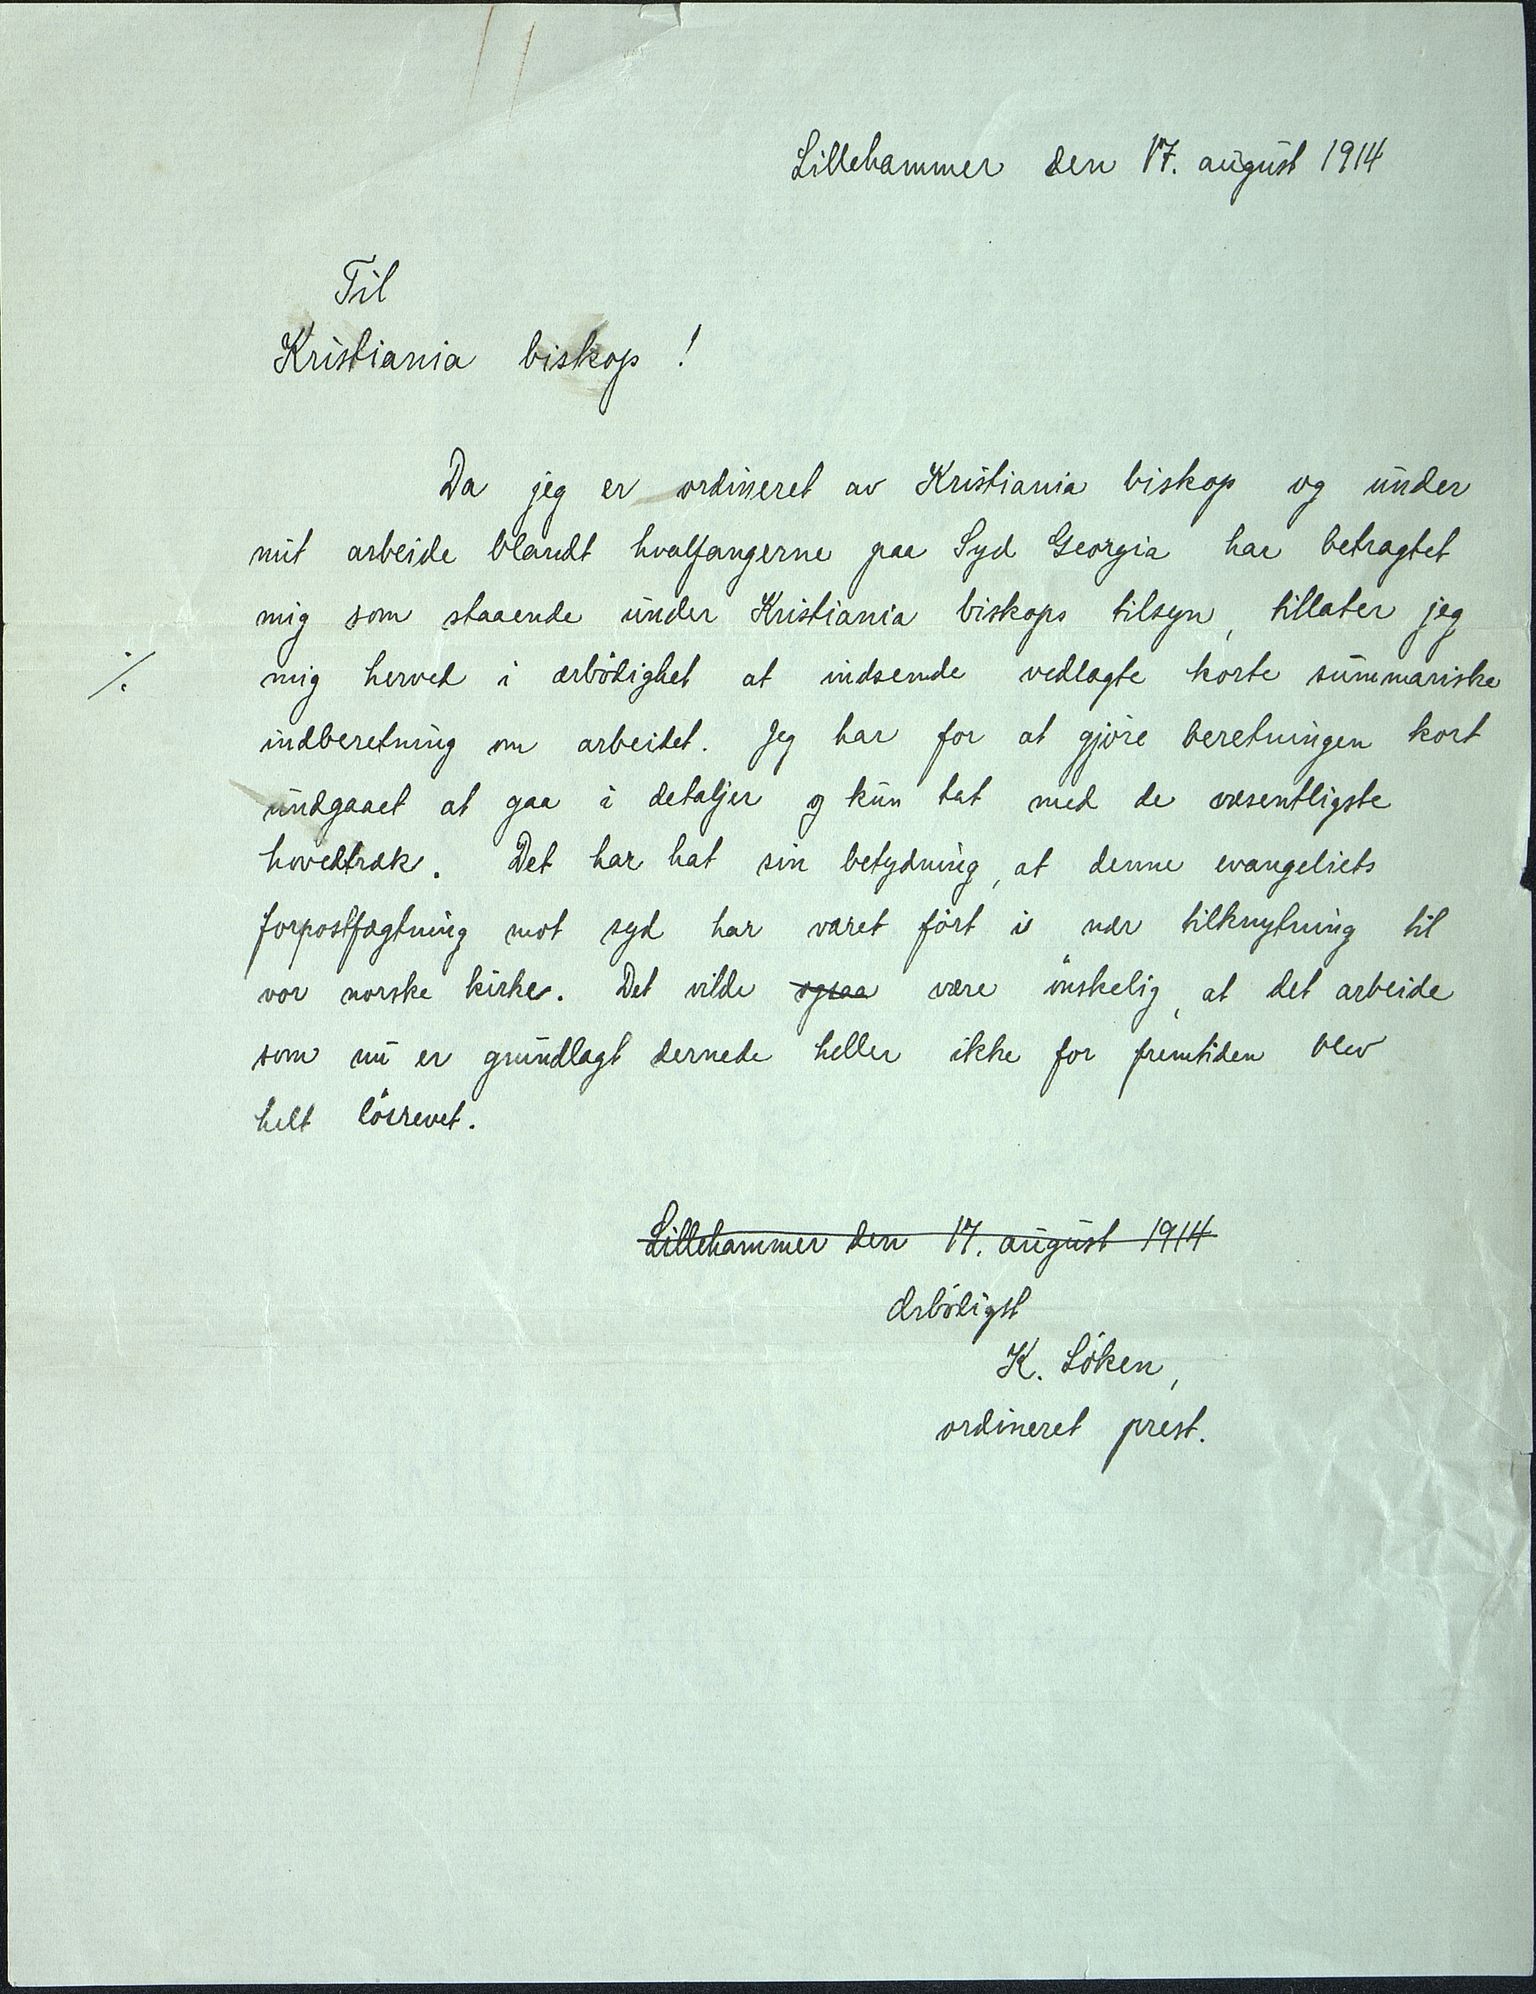 Lillehammer den 17. august 1914
Til
Kristiania biskop!
Da jeg er ordineret av Kristiania biskop og under
mit arbeide blandt hvalfangerne paa Syd Georgia har betragtet
mig som staaende under Kristiania biskops tilsyn, tillater jeg
·/. mig herved i ærbödighet at indsende vedlagte korte summariske
indberetning om arbeidet. Jeg har for at gjöre beretningen kort
undgaaet at gaa i detaljer og kun tat med de væsentligste
hovedtræk. Det har hat sin betydning, at denne evangeliets
forpostfægtning mot syd har været fört i nær tilknytning til
vor norske kirke. Det vilde ogsaa være önskelig, at det arbeide
som nu er grundlagt dernede heller ikke for fremtiden blev
helt lösrevet.
Lillehammer den 17. august 1914
Ærbödigst
K. Löken,
ordineret prest.